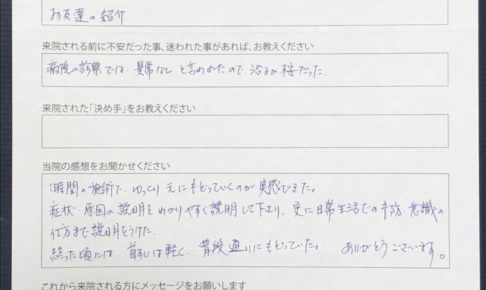 お友達の紹介
来院される前に不安だった事、迷われた事があれば、お教えください
病院の診察では、異常なしと言われたので治るか不安だった。
来院された「決め手」をお教えください
当院の感想をお聞かせください
1時間の施術で、ゆっくり元にもどっていくのが実感できた。
症状・原因の説明をわかりやすく説明して下さり、更に日常生活での予防・意識の
仕方まで説明をうけた。
終った頃には、首も軽く、普段通りにもどっていた。 ありがとうございます。
これから来院される方にメッセージをお願いします